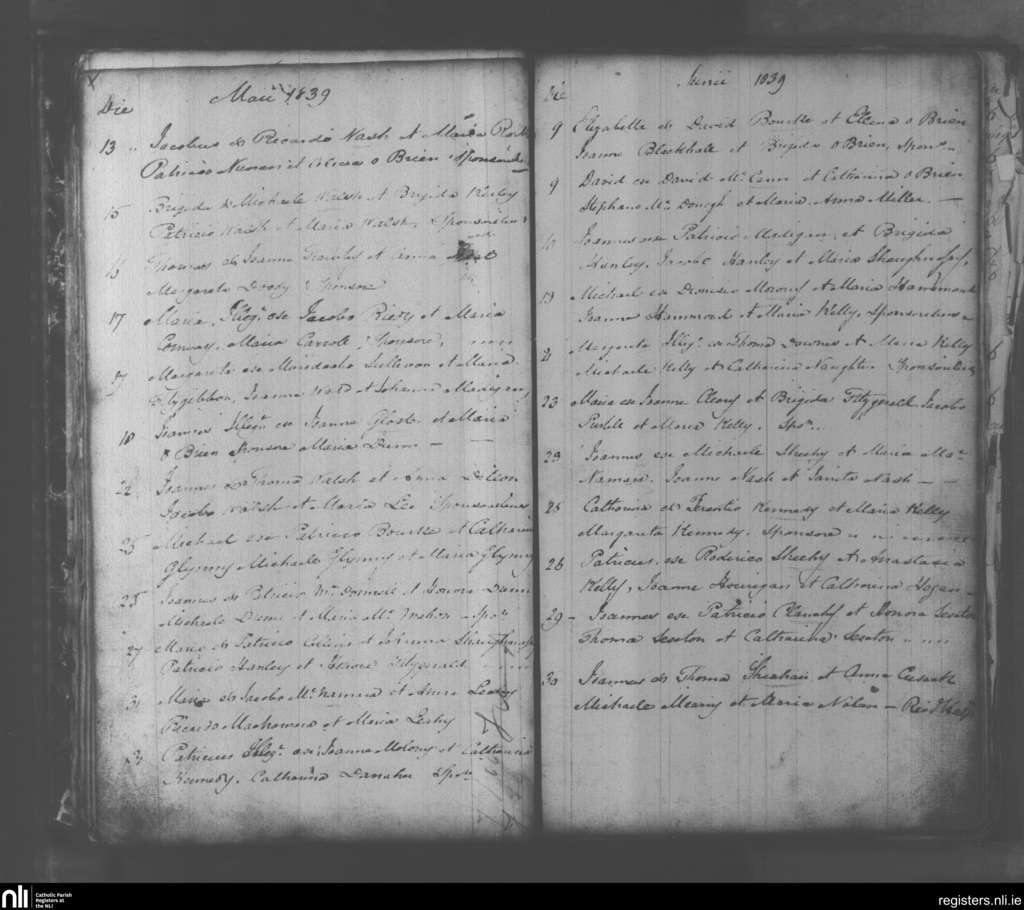 Maii 1839
Die
13 Jacobus de Ricardo Nash et Maria
Patricio Neenan et Alicia o Brien Sponsoribus
15 Brigida de Michaele Walsh et Brigida Keiley
Patricio Walsh et Maria Walsh, Sponsoribus
15 Thomas de Joanne et Anna
Margareta Doody Sponsore
17 Maria, Illeg. ex Jacobo et Maria
Conway, Maria Carroll, Sponsore,
17 Margareta ex Sullivan et Maria
Fitzgibbon, Joanne et Johanna Madigan,
18 Joannes Illeg. ex Joanne et Maria
o Brien Sponsore Maria Dunn —
22 Joannes de Thoma Walsh et Anna Dillon
Jacobo Walsh et Maria Lee Sponsoribus
25 Michael ex Patricio Bourke et Catharina
Glynny Michaele Glynny et Maria Glynny
25 Joannes de Patricio Mc Donnell et Honora Dunn
Michaele Dunn et Maria Mc Mahon - Spo
27 Maria de Patricio Collins et Johanna Shaughnessy
Patricio Hanley et Honora Fitzgerald
31 Maria de Jacobo McNamara et Anna Leahy
Ricardo Macnamara et Maria Leahy
31 Patricius Illeg. ex Joanne Molony et Catharina
Kennedy. Catharina Danaher Spon
Junii 1839
Die
9 Elizabetha de David Bourke et Ellena o Brien
Joanne Blackhall et Brigida o Brien, Spons -
9 David ex David Mc Cann et Catharina o Brien
Stephano Mc Donogh et Maria Anna Miller. —
10 Joannes ex Patricio Madigan et Brigida
Hanley. Jacobo Hanley et Maria Shaughnessy,
13 Michael ex Dionisio Morony et Maria Hammond
Joanne Hammond et Maria Kelly, Sponsoribus
21 Margareta Illeg. ex Thoma Downes et Maria Kelly
Michaele Kelly et Catharina Naughten Sponsoribus
23 Maria ex Joanne Cleary et Brigida Fitzgerald Jacobo
et Maria Kelly. Spo
23 Joannes ex Michaele Sheehy et Maria Mac
Namara. Joanne Nash et Nash —
25 Catharina ex Terentio Kennedy et Maria Kelly
Margareta Kennedy. Sponsore
26 Patricius ex Roderico Sheehy et Anastasia
Kelly, Joanne Hourigan et Catharina Hogan -
29 - Joannes ex Patricio Clanchy et Honora Sexton
Thoma Sexton et Catharina Sexton
30 Joannes de Thoma Sheahan et Anna
Michaele Meany et Maria Nolan —
nli
Catholic Parish
Registers at
the NLI
registers.nli.ie